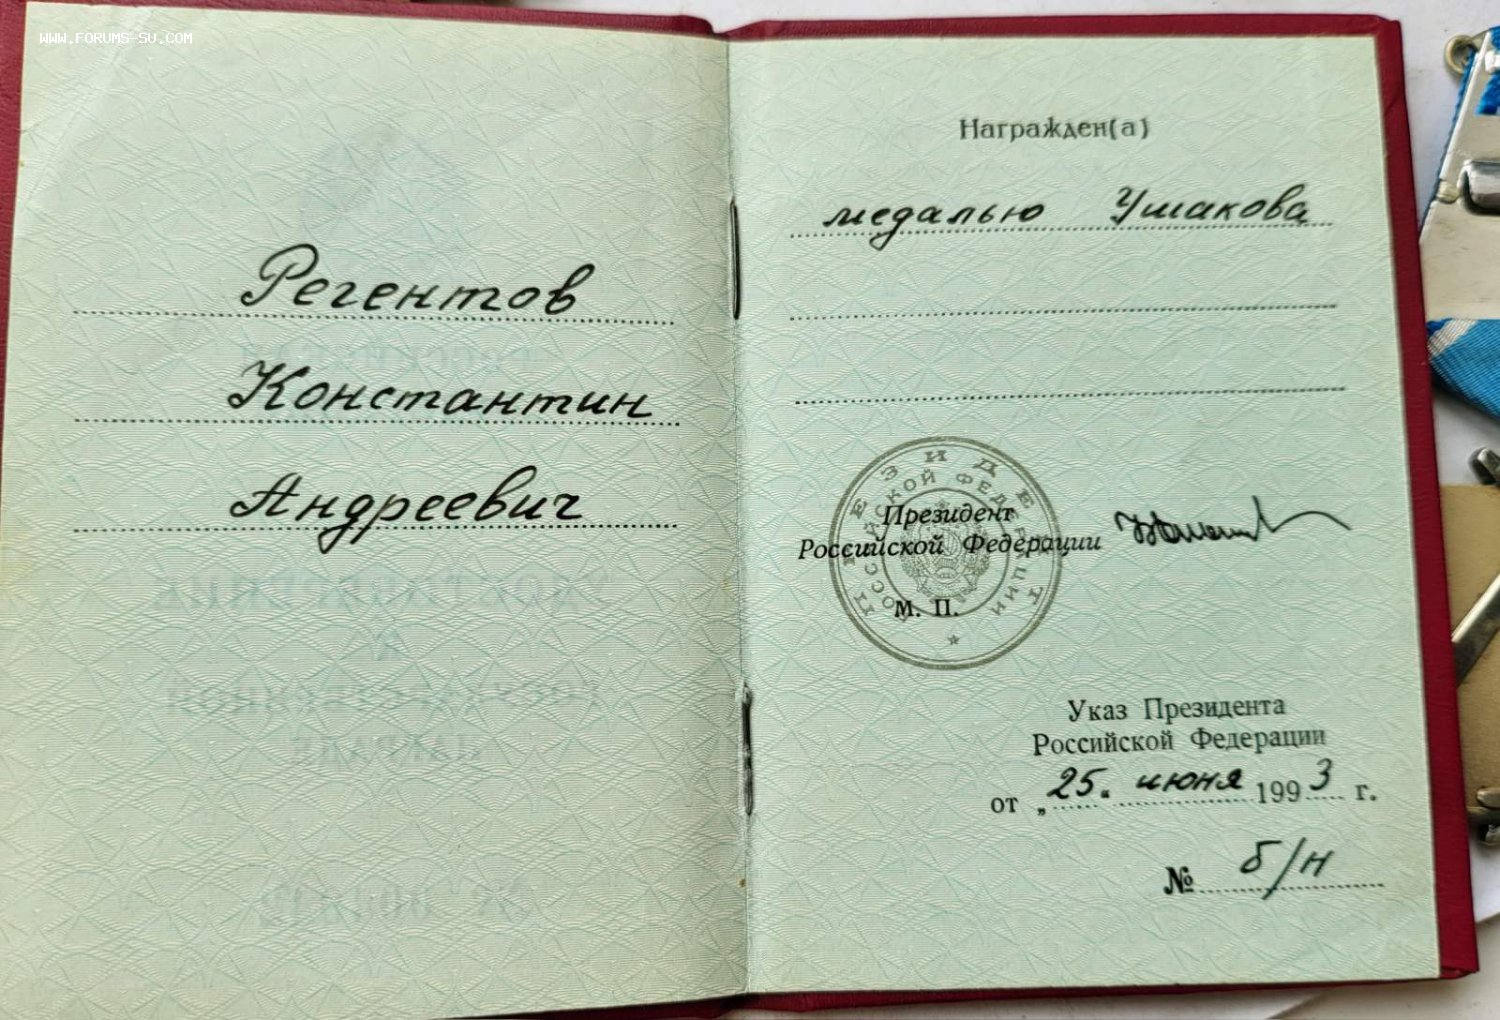 WWW.FORUMS-SU.COM
Регентов
Константин
Андреевич
Награжден(а)
медалью Ушакова
ПРЕЗИДЕНТ
РОССИЙСКОЙ ФЕДЕРАЦИИ
Президент
Российской Федерации
М. П.
Указ Президента
Российской Федерации
от „25.“ июня 1993 г.
№ б/н